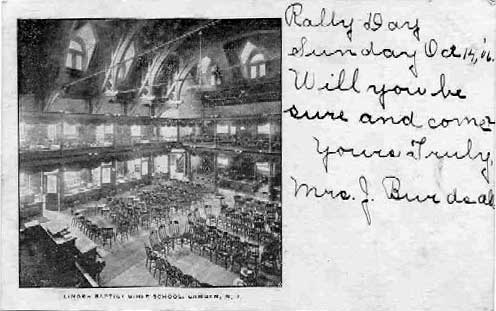 Rally Day
Sunday Oct 14, '06.
Will you be
sure and come
Yours Truly,
Mrs. J. Burdsal
LINDEN BAPTIST BIBLE SCHOOL, CAMDEN, N. J.